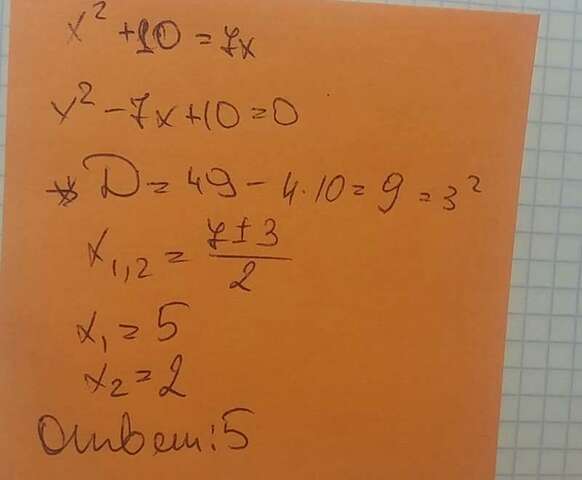 x² + 10 = 7x
x² - 7x + 10 = 0
D = 49 - 4·10 = 9 = 3²
x₁,₂ = (7 ± 3)/2
x₁ = 5
x₂ = 2
Ответ: 5